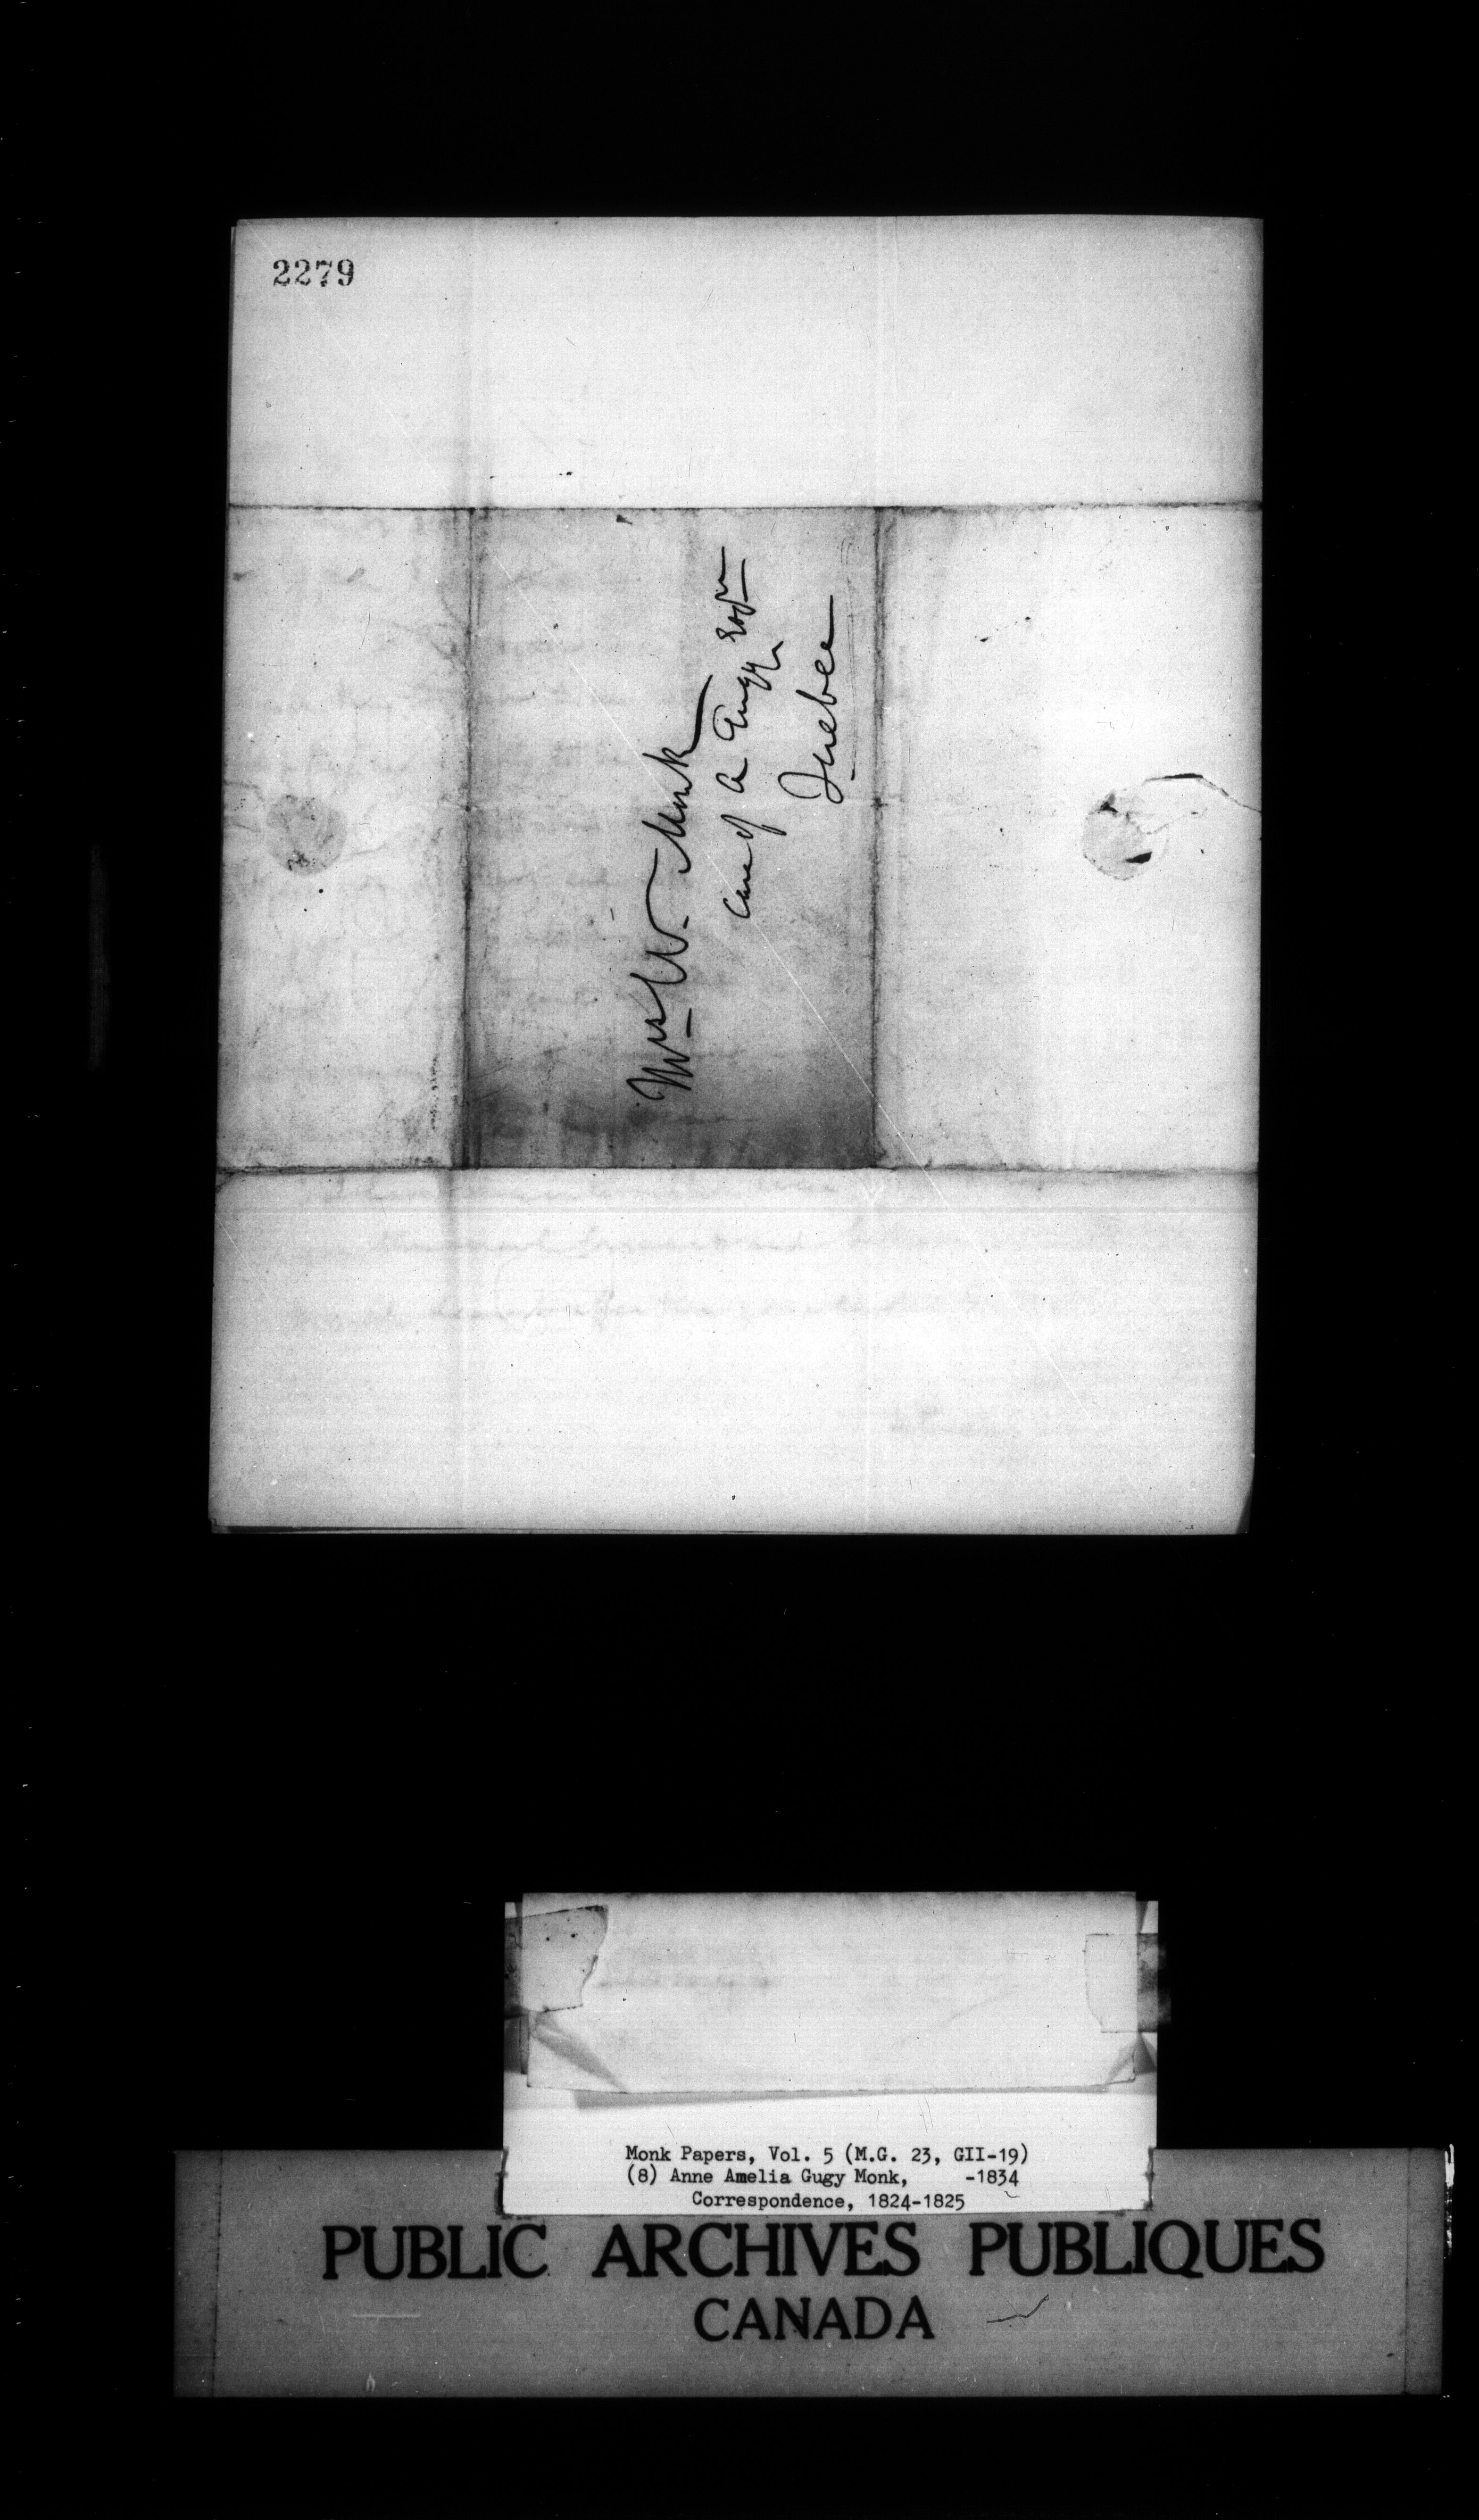 2279
Mrs W. Monk
care of A Gugy Esqr
Quebec
Monk Papers, Vol. 5 (M.G. 23, GII-19)
(8) Anne Amelia Gugy Monk, -1834
Correspondence, 1824-1825
PUBLIC ARCHIVES PUBLIQUES
CANADA